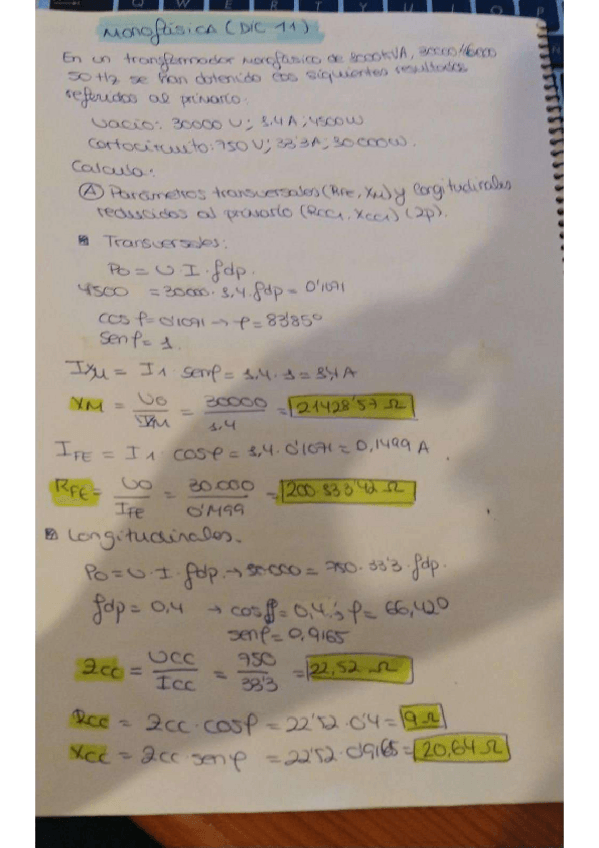 MONOFÁSICA (DIC 11)
En un transformador monofásico de 1000kVA, 30000/6000
50 Hz se han obtenido los siguientes resultados
referidos al primario:
Vacío: 30000 V; 1,4 A; 4500W
Cortocircuito: 750 V; 33'3A; 10000W.
Calcula:
A Parámetros transversales (RFe, XM) y longitudinales
reducidos al primario (Rcc1, Xcc1) (2p).
Transversales:
Po = U · I · fdp.
4500 = 30000 · 1,4 · fdp = 0'1071
cos φ = 0'1071 → φ = 83'85º
sen φ = 1
IXM = I1 · sen φ = 1,4 · 1 = 1,4 A
XM = Uo / IXM = 30000 / 1,4 = 21428'57 Ω
IFE = I1 · cos φ = 1,4 · 0'1071 = 0,1499 A
RFE = Uo / IFE = 30.000 / 0'1499 = 200.133'42 Ω
Longitudinales.
Po = U · I · fdp → 10000 = 750 · 33'3 · fdp.
fdp = 0,4 → cos φ = 0,4; φ = 66,42º
sen φ = 0,9165
Zcc = Ucc / Icc = 750 / 33'3 = 22,52 Ω
Rcc = Zcc · cos φ = 22'52 · 0'4 = 9 Ω
Xcc = Zcc · sen φ = 22'52 · 0'9165 = 20,64 Ω